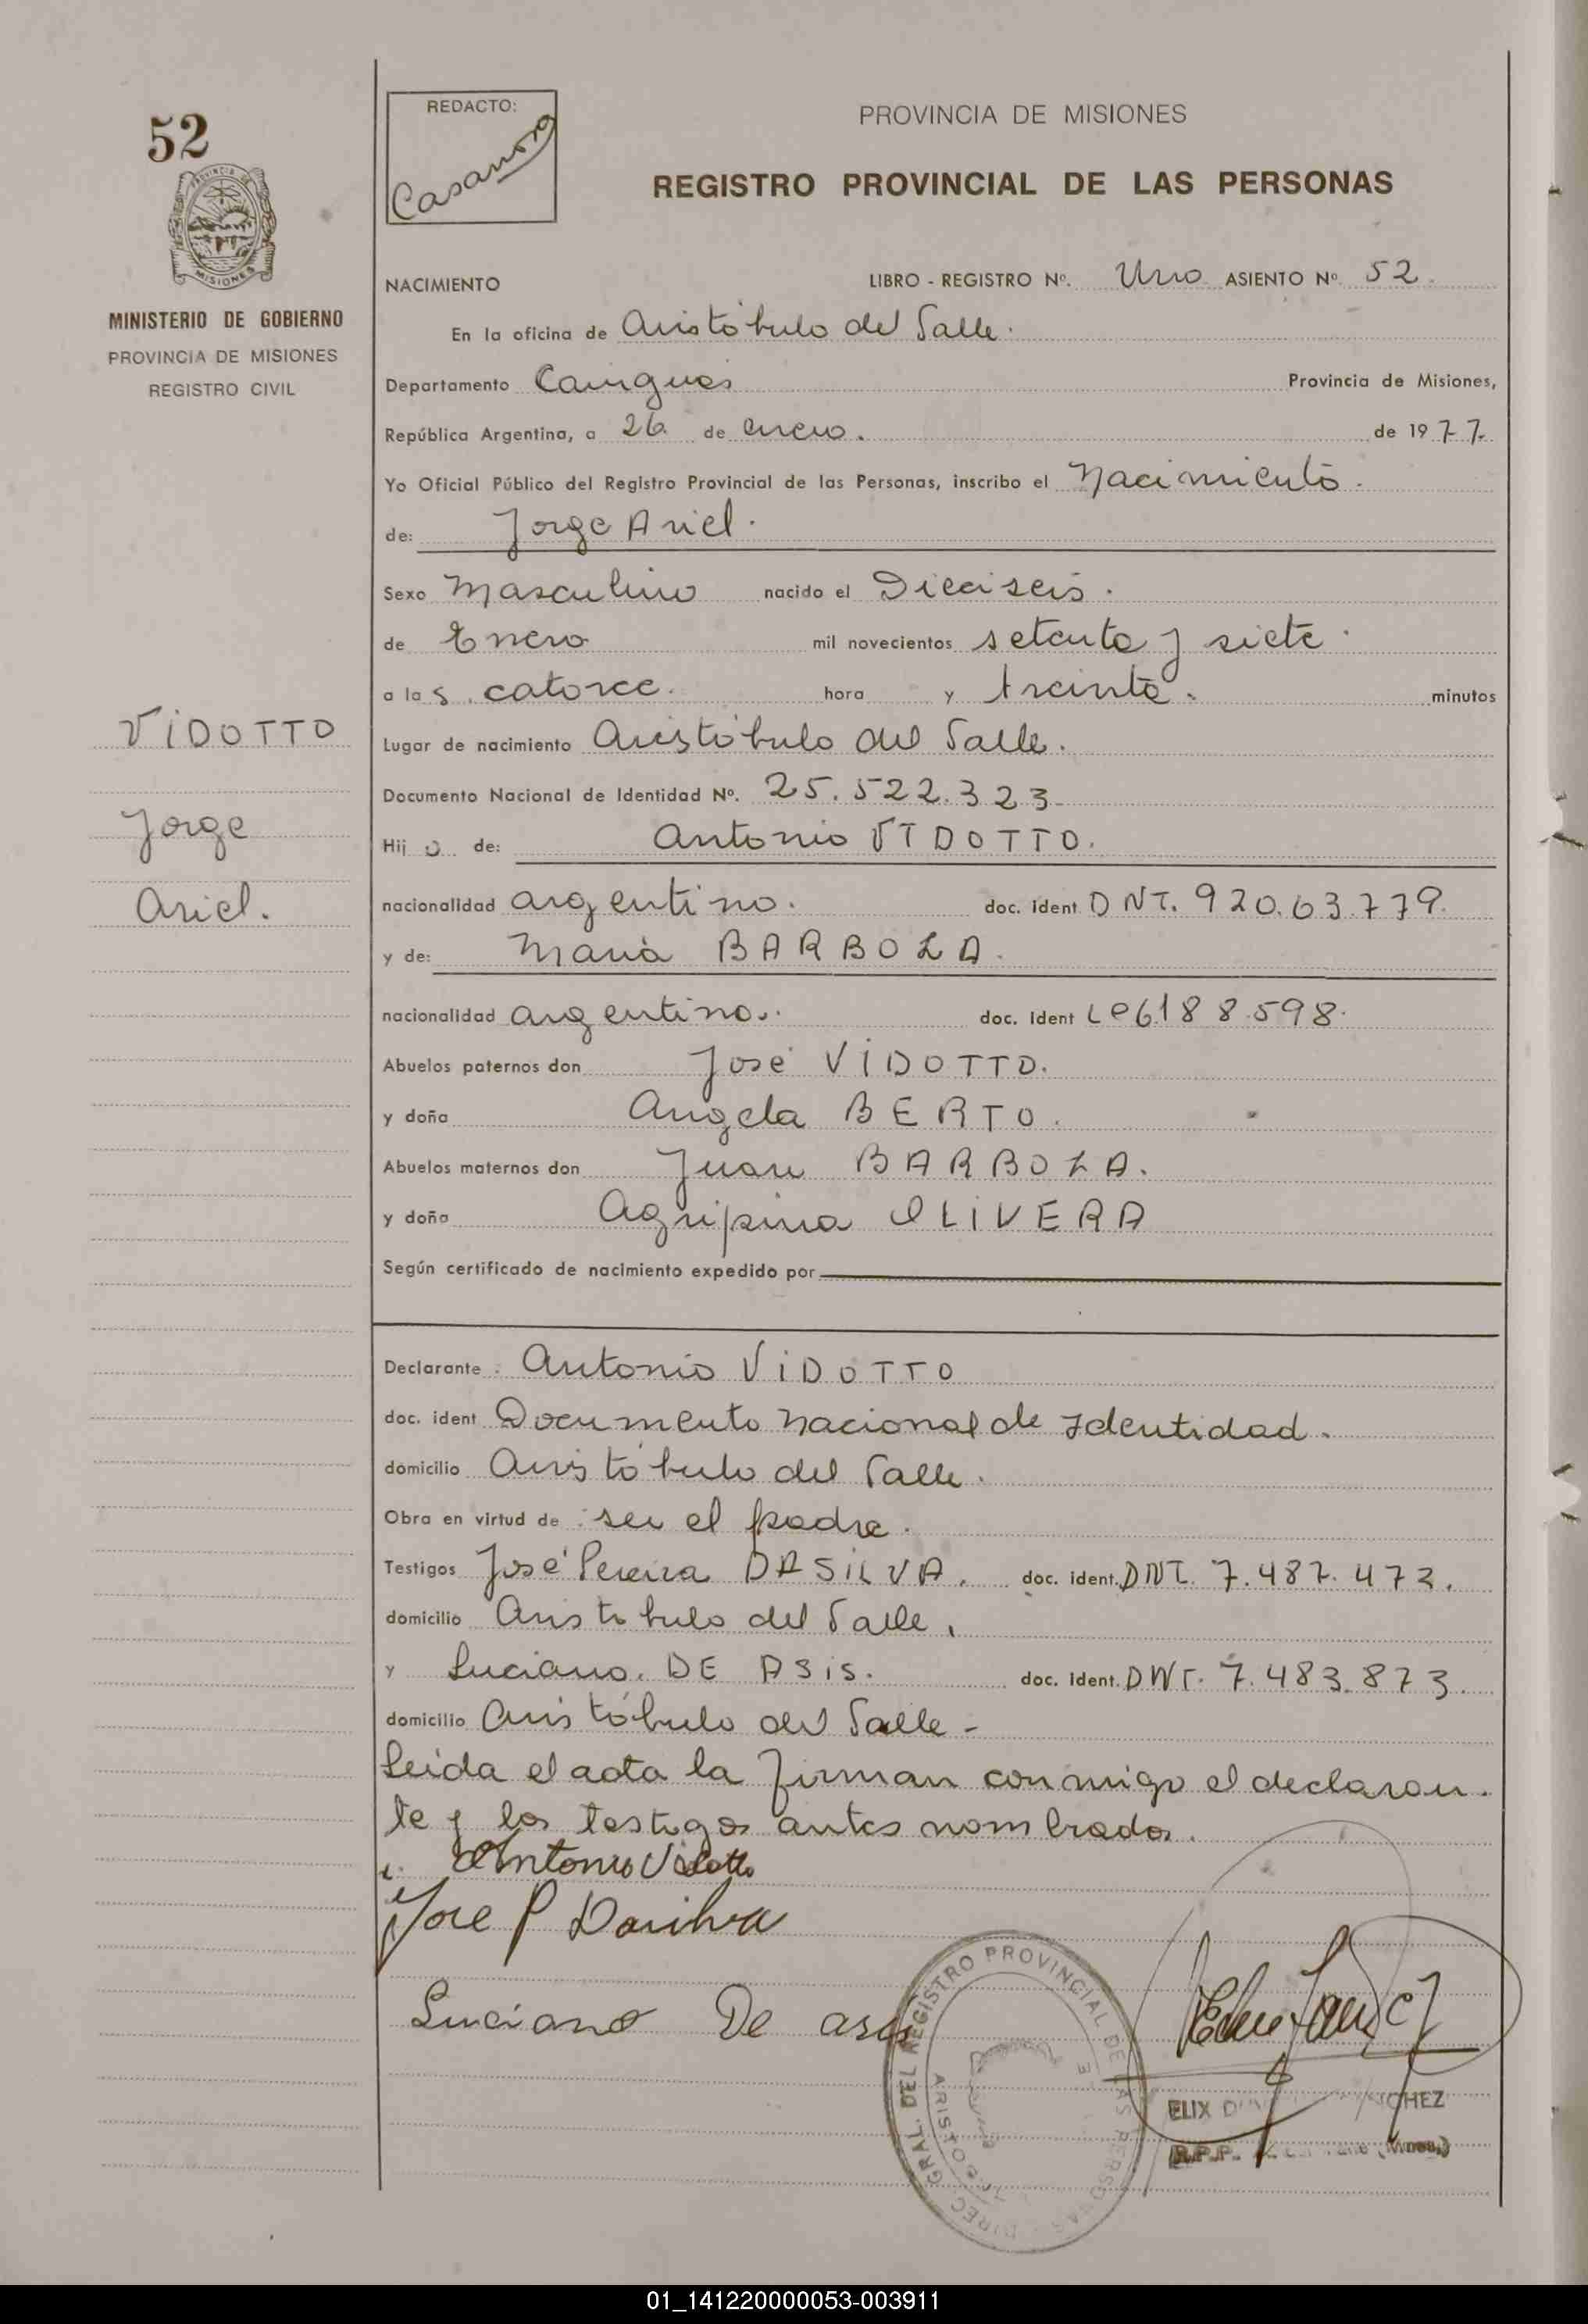 52
MISIONES
MINISTERIO DE GOBIERNO
PROVINCIA DE MISIONES
REGISTRO CIVIL
VIDOTTO
Jorge
Ariel.
REDACTO:
Casanova
PROVINCIA DE MISIONES
REGISTRO PROVINCIAL DE LAS PERSONAS
NACIMIENTO LIBRO - REGISTRO Nº. Uno ASIENTO Nº 52
En la oficina de Aristóbulo del Valle.
Departamento Cainguas Provincia de Misiones,
República Argentina, a 26 de enero. de 1977.
Yo Oficial Público del Registro Provincial de las Personas, inscribo el Nacimiento.
de: Jorge Ariel.
Sexo Masculino nacido el Dieciseis.
de Enero mil novecientos setenta y siete.
a las catorce. hora y treinta. minutos
Lugar de nacimiento Aristóbulo del Valle.
Documento Nacional de Identidad Nº. 25.522.323
Hijo de: Antonio VIDOTTO.
nacionalidad argentino. doc. ident DNI. 920.63.779.
y de: Maria BARBOZA.
nacionalidad argentina. doc. ident LC6188.598.
Abuelos paternos don José VIDOTTO.
y doña Angela BERTO.
Abuelos maternos don Juan BARBOZA.
y doña Agripina OLIVERA
Según certificado de nacimiento expedido por
Declarante Antonio VIDOTTO
doc. ident Documento Nacional de Identidad.
domicilio Aristóbulo del Valle.
Obra en virtud de ser el padre.
Testigos José Pereira DASILVA. doc. ident. DNI. 7.487.473.
domicilio Aristobulo del Valle.
y Luciano. DE ASIS. doc. ident. DNI. 7.483.873.
domicilio Aristóbulo del Valle-
Leida el acta la firman conmigo el declaran.
te y los testigos antes nombrados.
Antonio Vidotto
Jose P Dasilva
Luciano De asis
DIREC. GRAL. DEL REGISTRO PROVINCIAL DE LAS PERSONAS
R.P.P.
01_141220000053-003911